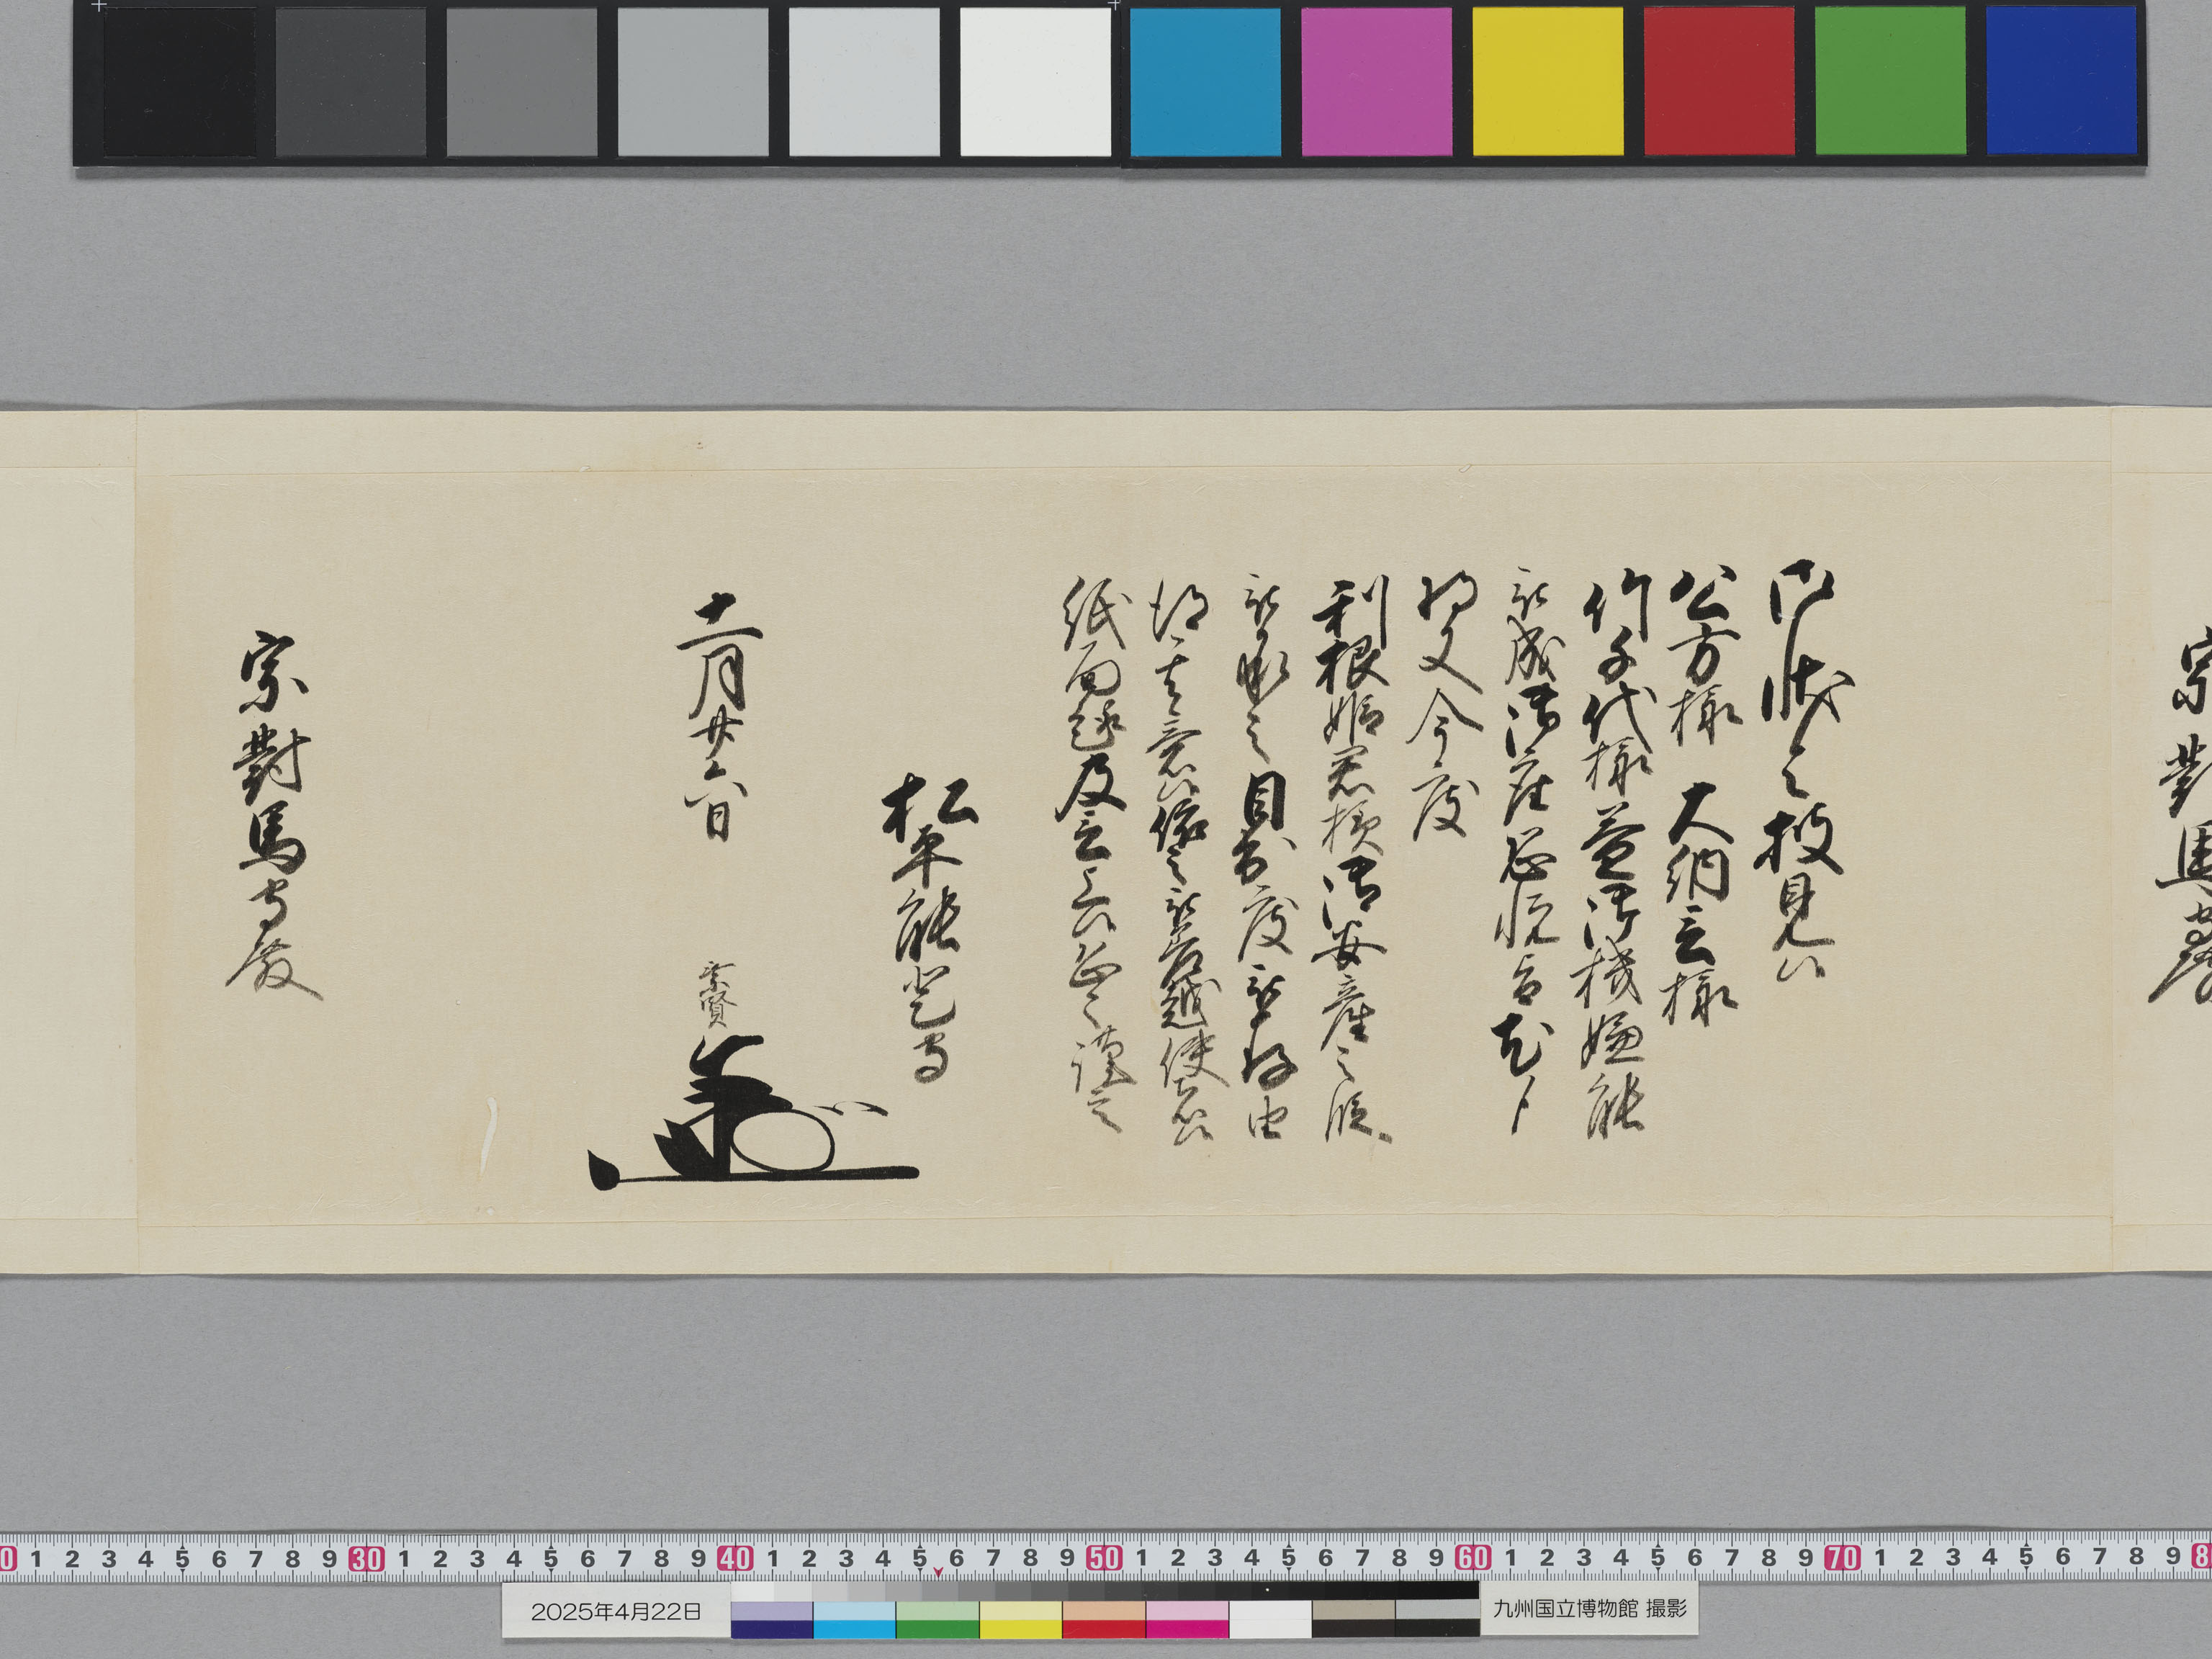 宗對馬守殿
御状令披見候
公方様 大納言様
竹千代様益御機嫌能
被成御座恐悦旨尤候
将又今度
利根姫君様御安産之段
被承之目出度被存由
得其意候依之被差越使者候
紙面趣及言上候恐々謹言
松平能登守
十一月廿六日 乗賢
宗對馬守殿
0 1 2 3 4 5 6 7 8 9 30 1 2 3 4 5 6 7 8 9 40 1 2 3 4 5 6 7 8 9 50 1 2 3 4 5 6 7 8 9 60 1 2 3 4 5 6 7 8 9 70 1 2 3 4 5 6 7 8 9 8
2025年4月22日
九州国立博物館 撮影